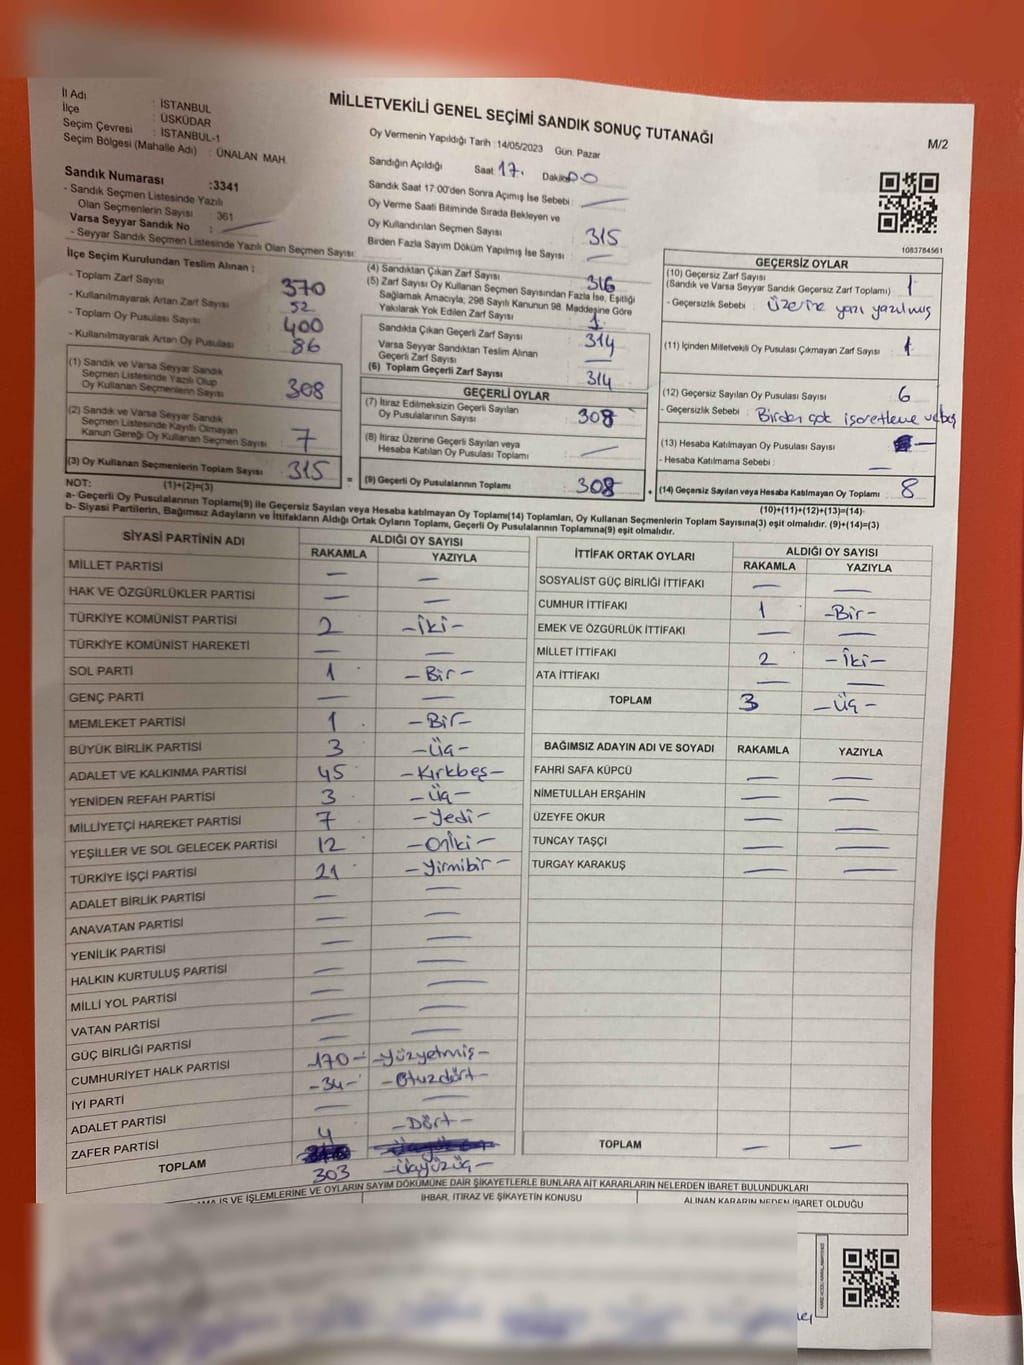 İl Adı : İSTANBUL
İlçe : ÜSKÜDAR
Seçim Çevresi : İSTANBUL-1
Seçim Bölgesi (Mahalle Adı) : ÜNALAN MAH
MİLLETVEKİLİ GENEL SEÇİMİ SANDIK SONUÇ TUTANAĞI
M/2
Oy Vermenin Yapıldığı Tarih : 14/05/2023 Gün: Pazar
Sandığın Açıldığı Saat 17. Dakika 00
Sandık Saat 17:00'den Sonra Açılmış İse Sebebi : —
Oy Verme Saati Bitiminde Sırada Bekleyen ve
Oy Kullandırılan Seçmen Sayısı 315
Birden Fazla Sayım Döküm Yapılmış İse Sayısı —
Sandık Numarası :3341
- Sandık Seçmen Listesinde Yazılı
Olan Seçmenlerin Sayısı : 361
Varsa Seyyar Sandık No : —
- Seyyar Sandık Seçmen Listesinde Yazılı Olan Seçmen Sayısı:
1083784561
İlçe Seçim Kurulundan Teslim Alınan :
- Toplam Zarf Sayısı 370
- Kullanılmayarak Artan Zarf Sayısı 52
- Toplam Oy Pusulası Sayısı 400
- Kullanılmayarak Artan Oy Pusulası 86
(1) Sandık ve Varsa Seyyar Sandık
Seçmen Listesinde Yazılı Olup
Oy Kullanan Seçmenlerin Sayısı 308
(2) Sandık ve Varsa Seyyar Sandık
Seçmen Listesinde Kayıtlı Olmayan
Kanun Gereği Oy Kullanan Seçmen Sayısı 7
(3) Oy Kullanan Seçmenlerin Toplam Sayısı 315
(1)+(2)=(3)
(4) Sandıktan Çıkan Zarf Sayısı 316
(5) Zarf Sayısı Oy Kullanan Seçmen Sayısından Fazla İse, Eşitliği
Sağlamak Amacıyla, 298 Sayılı Kanunun 98. Maddesine Göre
Yakılarak Yok Edilen Zarf Sayısı 1
Sandıkta Çıkan Geçerli Zarf Sayısı 314
Varsa Seyyar Sandıktan Teslim Alınan
Geçerli Zarf Sayısı —
(6) Toplam Geçerli Zarf Sayısı 314
GEÇERLİ OYLAR
(7) İtiraz Edilmeksizin Geçerli Sayılan
Oy Pusulalarının Sayısı 308
(8) İtiraz Üzerine Geçerli Sayılan veya
Hesaba Katılan Oy Pusulası Toplamı —
= (9) Geçerli Oy Pusulalarının Toplamı 308 +
GEÇERSİZ OYLAR
(10) Geçersiz Zarf Sayısı
(Sandık ve Varsa Seyyar Sandık Geçersiz Zarf Toplamı) 1
- Geçersizlik Sebebi : Üzerine yazı yazılmış
(11) İçinden Milletvekili Oy Pusulası Çıkmayan Zarf Sayısı : 1
(12) Geçersiz Sayılan Oy Pusulası Sayısı : 6
- Geçersizlik Sebebi : Birden çok işaretleme ve boş
(13) Hesaba Katılmayan Oy Pusulası Sayısı —
- Hesaba Katılmama Sebebi : —
(14) Geçersiz Sayılan veya Hesaba Katılmayan Oy Toplamı : 8
(10)+(11)+(12)+(13)=(14)
NOT:
a- Geçerli Oy Pusulalarının Toplamı(9) ile Geçersiz Sayılan veya Hesaba katılmayan Oy Toplamı(14) Toplamları, Oy Kullanan Seçmenlerin Toplam Sayısına(3) eşit olmalıdır. (9)+(14)=(3)
b- Siyasi Partilerin, Bağımsız Adayların ve İttifakların Aldığı Ortak Oyların Toplamı, Geçerli Oy Pusulalarının Toplamına(9) eşit olmalıdır.
SİYASİ PARTİNİN ADI ALDIĞI OY SAYISI
RAKAMLA YAZIYLA
MİLLET PARTİSİ — —
HAK VE ÖZGÜRLÜKLER PARTİSİ — —
TÜRKİYE KOMÜNİST PARTİSİ 2 -İki-
TÜRKİYE KOMÜNİST HAREKETİ — —
SOL PARTİ 1 -Bir-
GENÇ PARTİ — —
MEMLEKET PARTİSİ 1 -Bir-
BÜYÜK BİRLİK PARTİSİ 3 -Üç-
ADALET VE KALKINMA PARTİSİ 45 -Kırkbeş-
YENİDEN REFAH PARTİSİ 3 -Üç-
MİLLİYETÇİ HAREKET PARTİSİ 7 -Yedi-
YEŞİLLER VE SOL GELECEK PARTİSİ 12 -Oniki-
TÜRKİYE İŞÇİ PARTİSİ 21 -Yirmibir-
ADALET BİRLİK PARTİSİ — —
ANAVATAN PARTİSİ — —
YENİLİK PARTİSİ — —
HALKIN KURTULUŞ PARTİSİ — —
MİLLİ YOL PARTİSİ — —
VATAN PARTİSİ — —
GÜÇ BİRLİĞİ PARTİSİ — —
CUMHURİYET HALK PARTİSİ -170- -Yüzyetmiş-
İYİ PARTİ -34- -Otuzdört-
ADALET PARTİSİ — —
ZAFER PARTİSİ 4 -Dört-
TOPLAM 303 -Üçyüzüç-
İTTİFAK ORTAK OYLARI ALDIĞI OY SAYISI
RAKAMLA YAZIYLA
SOSYALİST GÜÇ BİRLİĞİ İTTİFAKI — —
CUMHUR İTTİFAKI 1 -Bir-
EMEK VE ÖZGÜRLÜK İTTİFAKI — —
MİLLET İTTİFAKI 2 -İki-
ATA İTTİFAKI — —
TOPLAM 3 -Üç-
BAĞIMSIZ ADAYIN ADI VE SOYADI RAKAMLA YAZIYLA
FAHRİ SAFA KÜPCÜ — —
NİMETULLAH ERŞAHİN — —
ÜZEYFE OKUR — —
TUNCAY TAŞÇI — —
TURGAY KARAKUŞ — —
TOPLAM — —
İŞ VE İŞLEMLERİNE VE OYLARIN SAYIM DÖKÜMÜNE DAİR ŞİKAYETLERLE BUNLARA AİT KARARLARIN NELERDEN İBARET BULUNDUKLARI
İHBAR, İTİRAZ VE ŞİKAYETİN KONUSU ALINAN KARARIN NEDEN İBARET OLDUĞU